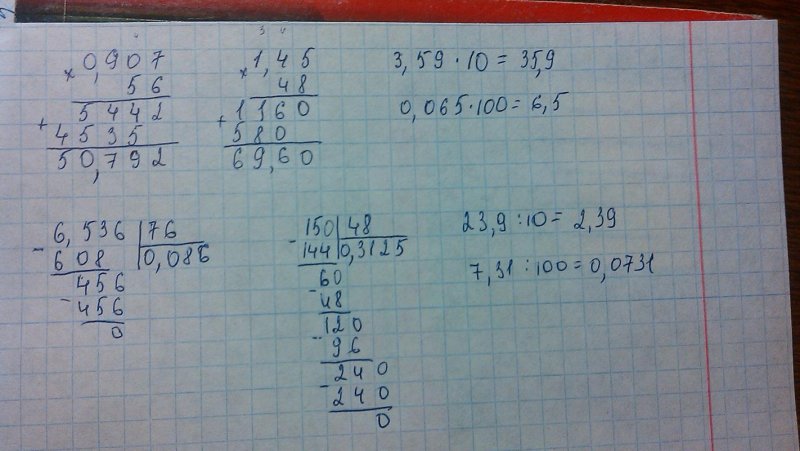 0,907
× 56
5442
+ 4535
50,792
3 4
1,45
× 48
1160
+ 580
69,60
3,59 · 10 = 35,9
0,065 · 100 = 6,5
6,536 | 76
- 608 | 0,086
456
- 456
0
150 | 48
- 144 | 0,3125
60
- 48
120
- 96
240
- 240
0
23,9 : 10 = 2,39
7,31 : 100 = 0,0731